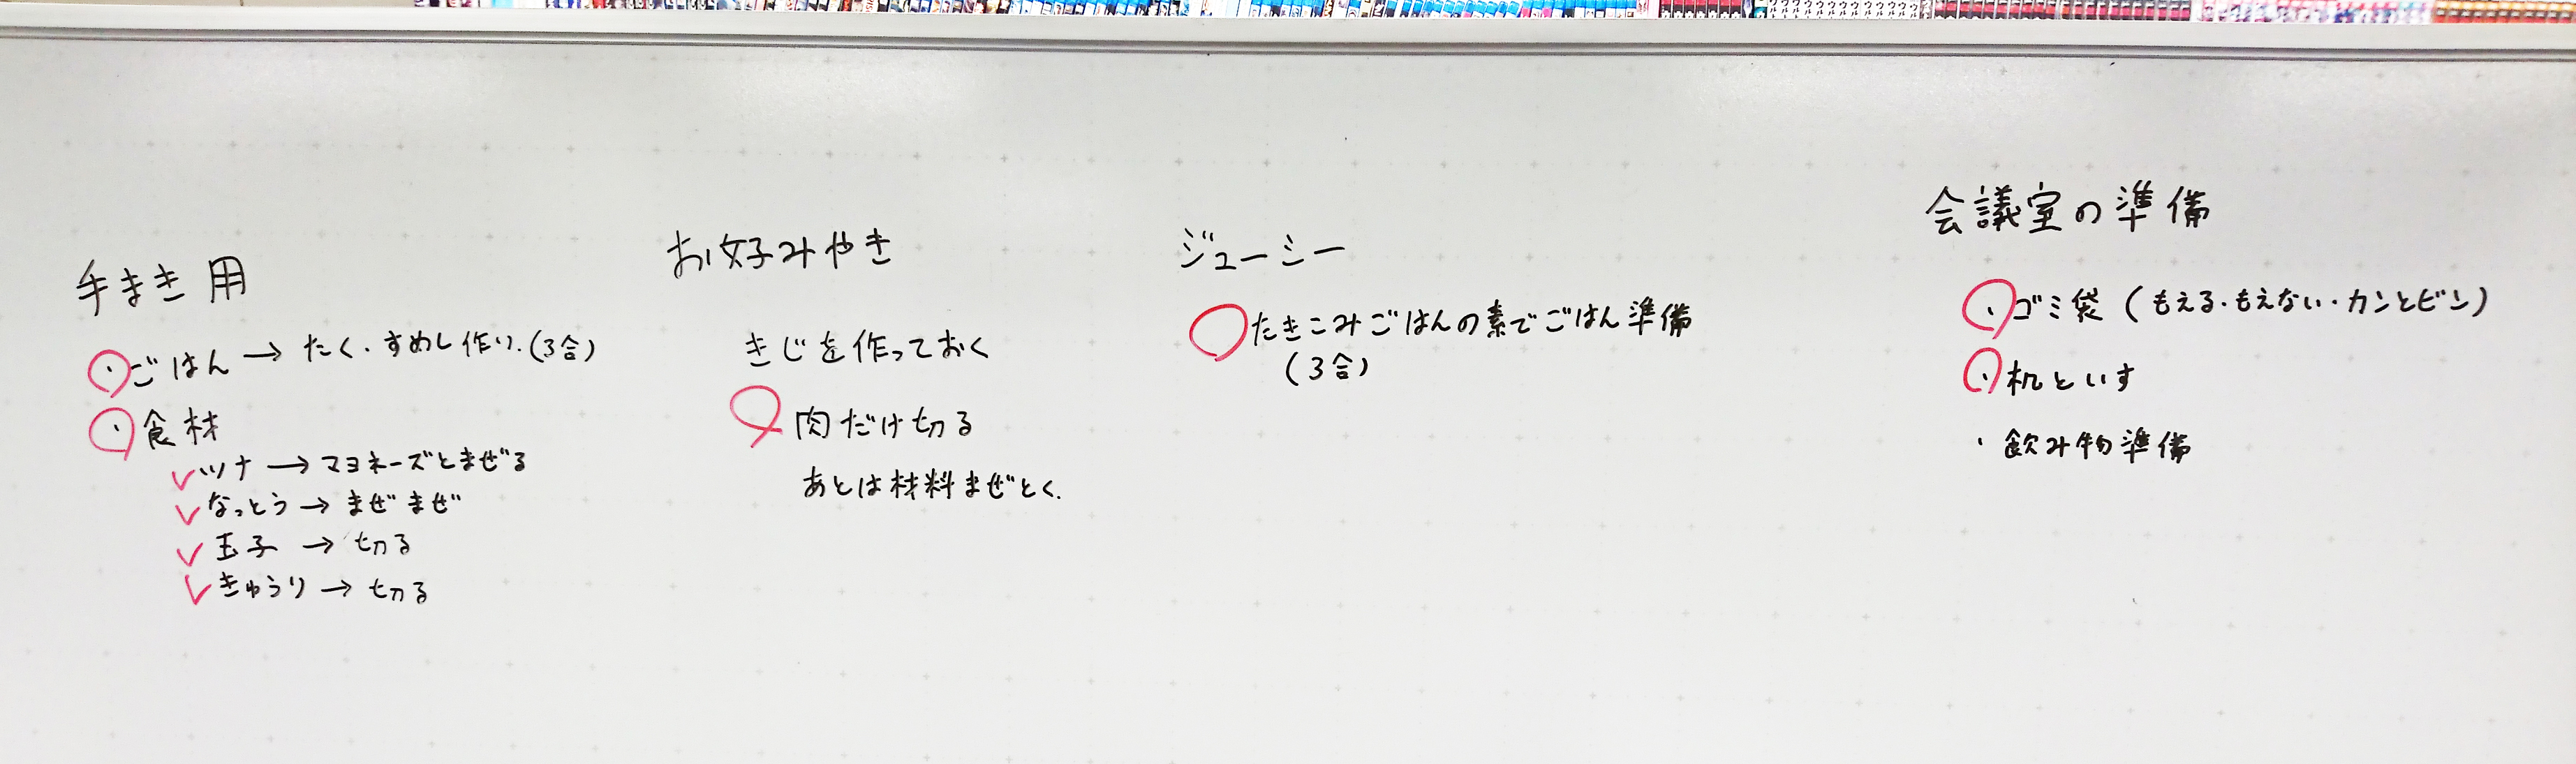 手まき用
・ごはん→たく・すめし作り.(3合)
・食材
ツナ→マヨネーズとまぜる
なっとう→まぜまぜ
玉子→切る
きゅうり→切る
お好みやき
きじを作っておく
肉だけ切る
あとは材料まぜとく.
ジューシー
たきこみごはんの素でごはん準備
(3合)
会議室の準備
・ゴミ袋(もえる・もえない・カンとビン)
・机といす
・飲み物準備